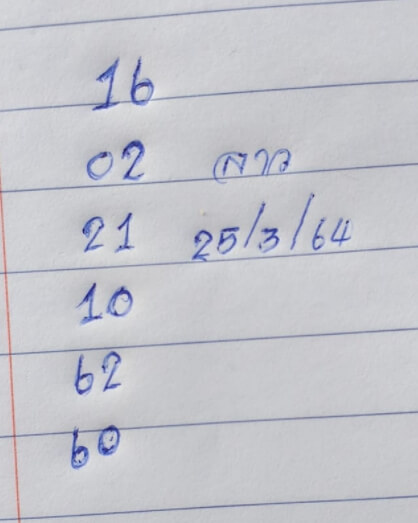 16
02 ลาว
21 25/3/64
10
62
60